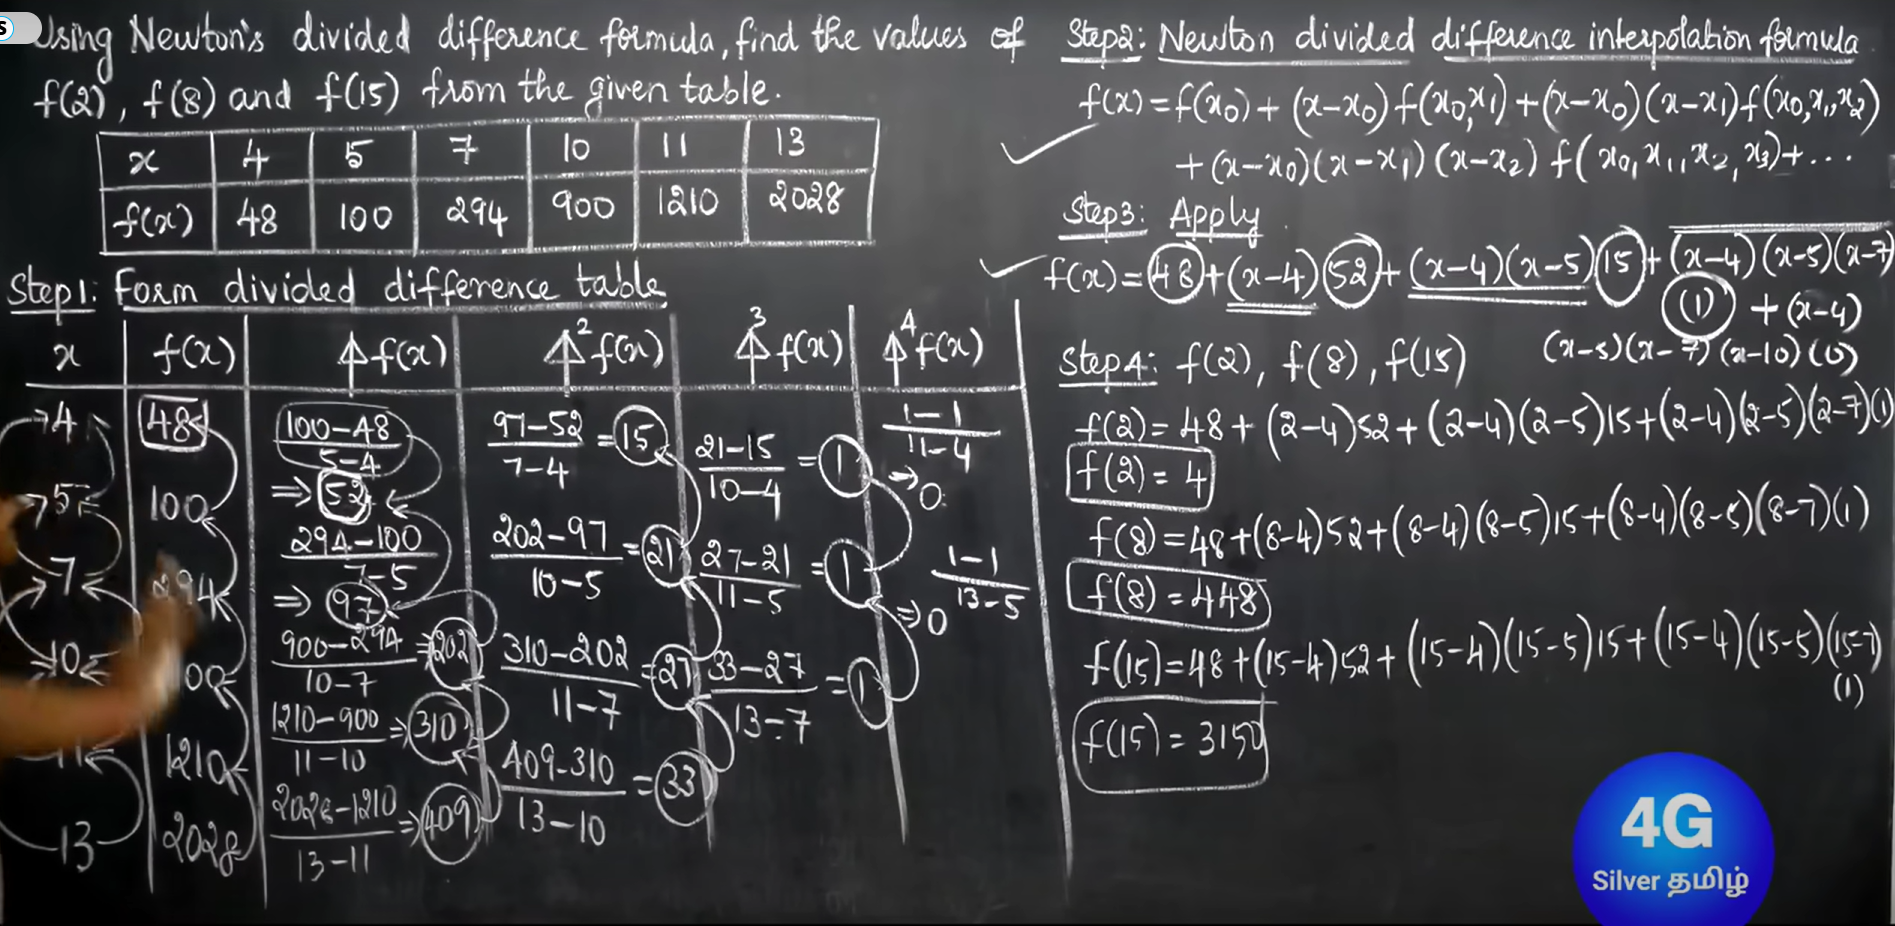 S
Using Newton's divided difference formula, find the values of
f(2), f(8) and f(15) from the given table.
x 4 5 7 10 11 13
f(x) 48 100 294 900 1210 2028
Step1: Form divided difference table
x f(x) ⍋f(x) ⍋²f(x) ⍋³f(x) ⍋⁴f(x)
4 48
5 100
7 294
10
11 1210
13 2028
100-48 / 5-4
⇒ 52
294-100 / 7-5
⇒ 97
900-294 / 10-7 ⇒ 202
1210-900 / 11-10 ⇒ 310
2028-1210 / 13-11 ⇒ 409
97-52 / 7-4 = 15
202-97 / 10-5 = 21
310-202 / 11-7 = 27
409-310 / 13-10 = 33
21-15 / 10-4 = 1
27-21 / 11-5 = 1
33-27 / 13-7 = 1
1-1 / 11-4
⇒ 0
1-1 / 13-5
⇒ 0
Step2: Newton divided difference interpolation formula
f(x) = f(x₀) + (x-x₀) f(x₀,x₁) + (x-x₀)(x-x₁) f(x₀,x₁,x₂)
+ (x-x₀)(x-x₁)(x-x₂) f(x₀,x₁,x₂,x₃)+...
Step3: Apply
f(x) = 48 + (x-4) 52 + (x-4)(x-5) 15 + (x-4)(x-5)(x-7)
(1) + (x-4)
(x-5)(x-7)(x-10)(0)
Step4: f(2), f(8), f(15)
f(2) = 48 + (2-4)52 + (2-4)(2-5)15 + (2-4)(2-5)(2-7)(1)
f(2) = 4
f(8) = 48+(8-4)52+(8-4)(8-5)15+(8-4)(8-5)(8-7)(1)
f(8) = 448
f(15)=48+(15-4)52+(15-4)(15-5)15+(15-4)(15-5)(15-7)
(1)
f(15) = 3150
4G
Silver தமிழ்